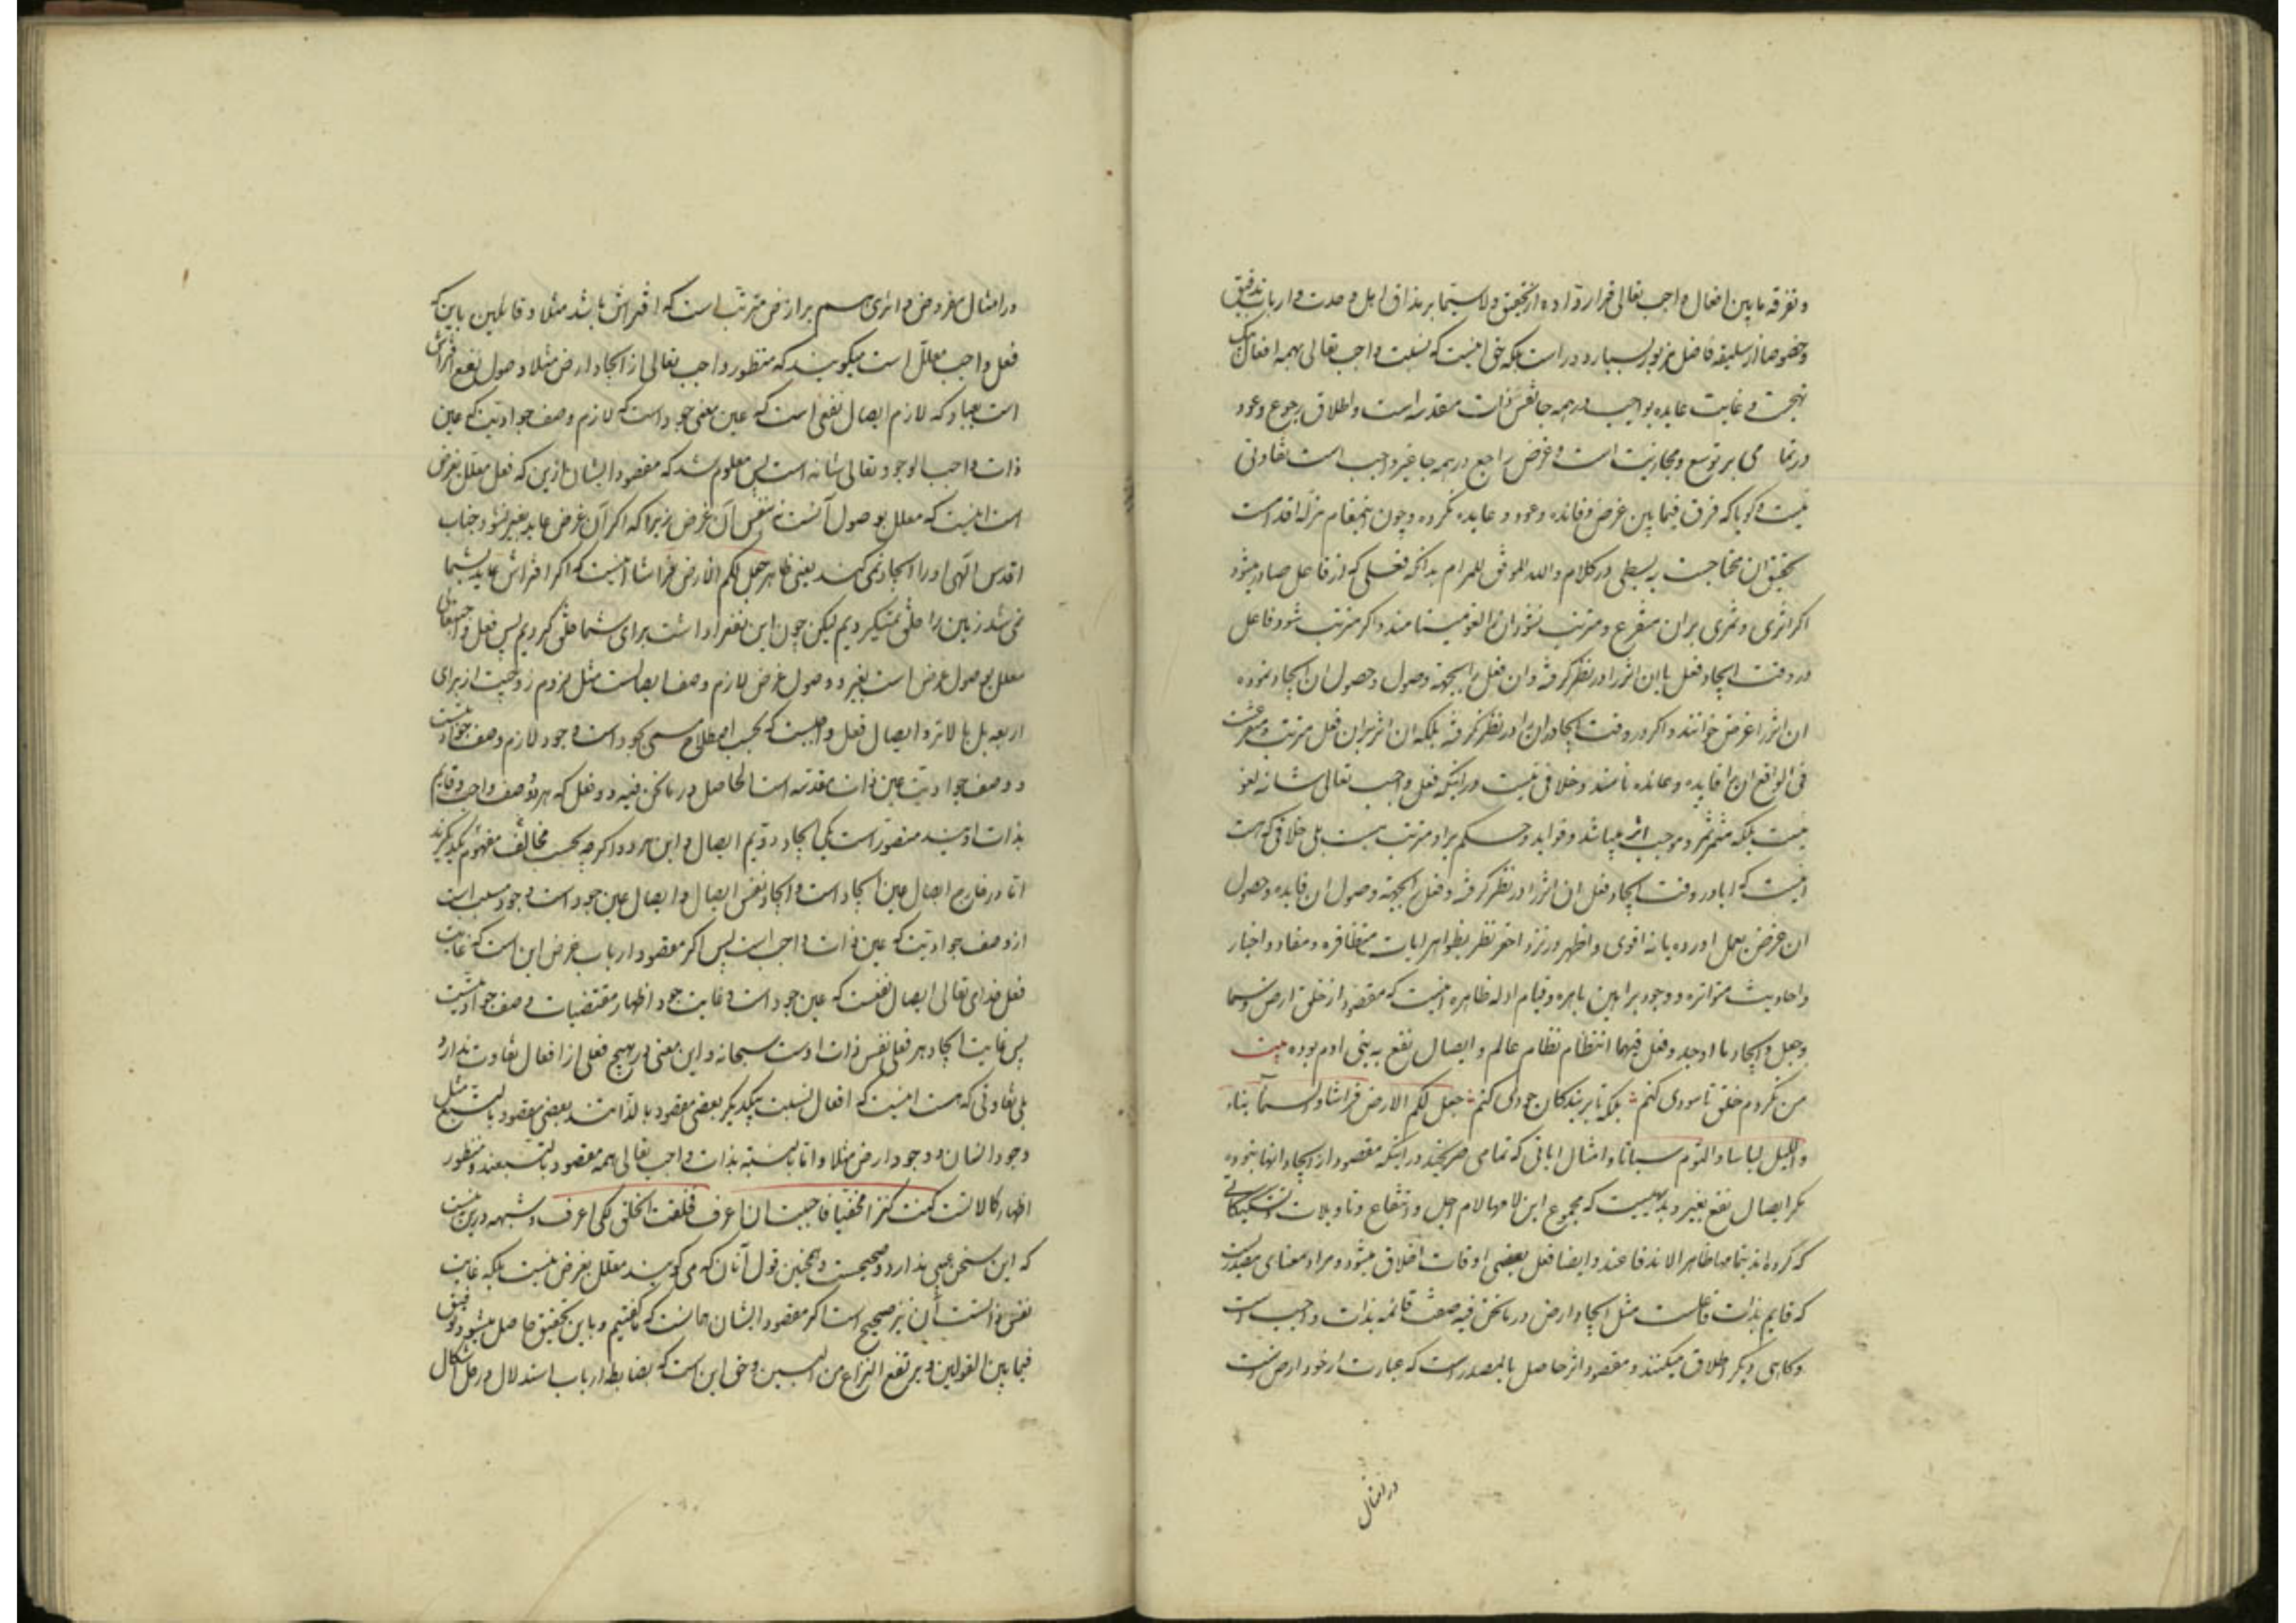 و تفرقه مابین افعال واجب تعالی قرار داده از تحقیق ولا سیما بر مذاق اهل وحدت و ارباب تدقیق
و خصوصا از سلیقه فاضل مزبور بسیار دور است بلکه حق اینست که نسبت واجب تعالی بهمه افعال یک
نهجست و غایت عایده بواجب در همه جا نفس ذات مقدسه است و اطلاق رجوع و عود
در تمامی بر توسع و مجازیت است و غرض راجع در همه جا غیر واجب است تفاوتی
نیست و گویا که فرق فیما بین غرض و فائده و عود و عایده نکرده و چون اینمقام مزله اقدامست
تحقیق آن محتاجست به بسطی در کلام والله الموفق للمرام بدانکه فعلی که از فاعل صادر میشود
اگر اثری و ثمری بران متفرع و مترتب نشود آنرا لغو مینامند و اگر مترتب شود فاعل
در وقت ایجاد فعل یا ان اثر را در نظر گرفته و ان فعل را بجهة وصول و حصول ان ایجاد نموده
ان اثر را غرض خوانند و اگر در وقت ایجاد ان را در نظر نگرفته بلکه ان اثر بران فعل مترتب و متفرعست
فی الواقع انرا فایده و عائده نامند و خلافی نیست در اینکه فعل واجب تعالی شانه لغو
نیست بلکه مثمر ثمر و موجب اثر میباشد و فواید و حکم براو مترتب هست بلی خلافی که هست
اینست که ایا در وقت ایجاد فعل ان اثر را در نظر گرفته و فعل را بجهة وصول ان فایده و حصول
ان غرض بعمل اورده یا نه اقوی و اظهر در نزد احقر نظر بظواهر ایات متظافره و مفاد اخبار
و احادیث متواتره و وجود براهین باهره و قیام ادله ظاهره اینست که مقصود از خلق ارض و سما
و جعل و ایجاد ما اوجد و فعل فیهما انتظام نظام عالم و ایصال نفع به بنی ادم بوده بیت
من نکردم خلق تا سودی کنم بلکه تا بر بندگان جودی کنم جعل لکم الارض فراشا والسماء بناء
واللیل لباسا والنوم سباتا و امثال ایاتی که تمامی صریحند در اینکه مقصود از ایجاد انها نبوده
مگر ایصال نفع بغیر و بدیهیست که مجموع این لامها لام اجل و انتفاع و تاویلات
که کرده‌اند بتمامها ظاهر الاندفاعند و ایضا فعل بعضی اوقات اطلاق میشود و مراد معنای مصدریست
که قایم بذات فاعلست مثل ایجاد ارض در ما نحن فیه صفت قائمه بذات واجب است
و گاهی دیگر اطلاق میکنند و مقصود اثر حاصل بالمصدر است که عبارت از خود ارض است
در امثال
در امثال مفروض و اثری هم بر ارض مترتب است که افتراش باشد مثلا و قائلین باین که
فعل واجب معلل است میگویند که منظور واجب تعالی از ایجاد ارض مثلا وصول نفع افتراش
است بعباد که لازم ایصال نفعی است که عین معنی جود است که لازم وصف جوادیتیست که عین
ذات واجب الوجود تعالی شانه است پس معلوم شد که مقصود ایشان ازین که فعل معلل بغرض
است اینست که معلل بوصول آنست نه بنفس آن غرض زیرا که اگر آن غرض عاید بغیر نشود جناب
اقدس الهی او را ایجاد نمی کند یعنی ظاهر جعل لکم الارض فراشا اینست که اگر افتراش عاید بشما
نمی شد زمین را خلق نمیکردیم لیکن چون این نفع را داشت برای شما خلق کردیم پس فعل واجبتعالی
معلل بوصول غرض است بغیر و وصول غرض لازم وصف ایصالست مثل لزوم زوجیت از برای
اربعه بل بالاتر و ایصال فعل واجبیست که بحسب اصطلاح مسمی بجود است و جود لازم وصف جوادیتست
و وصف جوادیت عین ذات مقدسه است الحاصل در ما نحن فیه دو فعل که هر دو وصف واجب و قایم
بذات اویند متصور است یکی ایجاد دویم ایصال و این هر دو اگرچه بحسب مفهوم مخالف یکدیگرند
اما در خارج ایصال عین ایجاد است و ایجاد نفس ایصال و ایصال عین جود است و جود مسبب است
از وصف جوادیت که عین ذات واجب است پس اگر مقصود ارباب غرض این است که غایت
فعل خدای تعالی ایصال نفعست که عین جود است و غایت جود اظهار مقتضیات وصف جوادیتست
پس غایت ایجاد هر فعل نفس ذات اوست سبحانه و این معنی در هیچ فعلی از افعال تفاوت ندارد
بلی تفاوتی که هست اینست که افعال نسبت بیکدیگر بعضی مقصود بالذاتند بعضی مقصود بالتبع مثل
وجود انسان و وجود ارض مثلا و اما بالنسبه بذات واجب تعالی همه مقصود بالتبعند و منظور
اظهار کمالاتست کنت کنزا مخفیا فاحببت ان اعرف فخلقت الخلق لکی اعرف و شبهه درین نیست
که این سخن عیبی ندارد و صحیحست و همچنین قول آنان که می گویند معلل بغرض نیست بلکه غایت
نفس ذاتست آن نیز صحیح است اگر مقصود ایشان همانست که گفتیم و باین تحقیق حاصل میشود توفیق
فیما بین القولین و یرتفع النزاع من البین و حق این است که بضابطه ارباب استدلال در حل اشکال